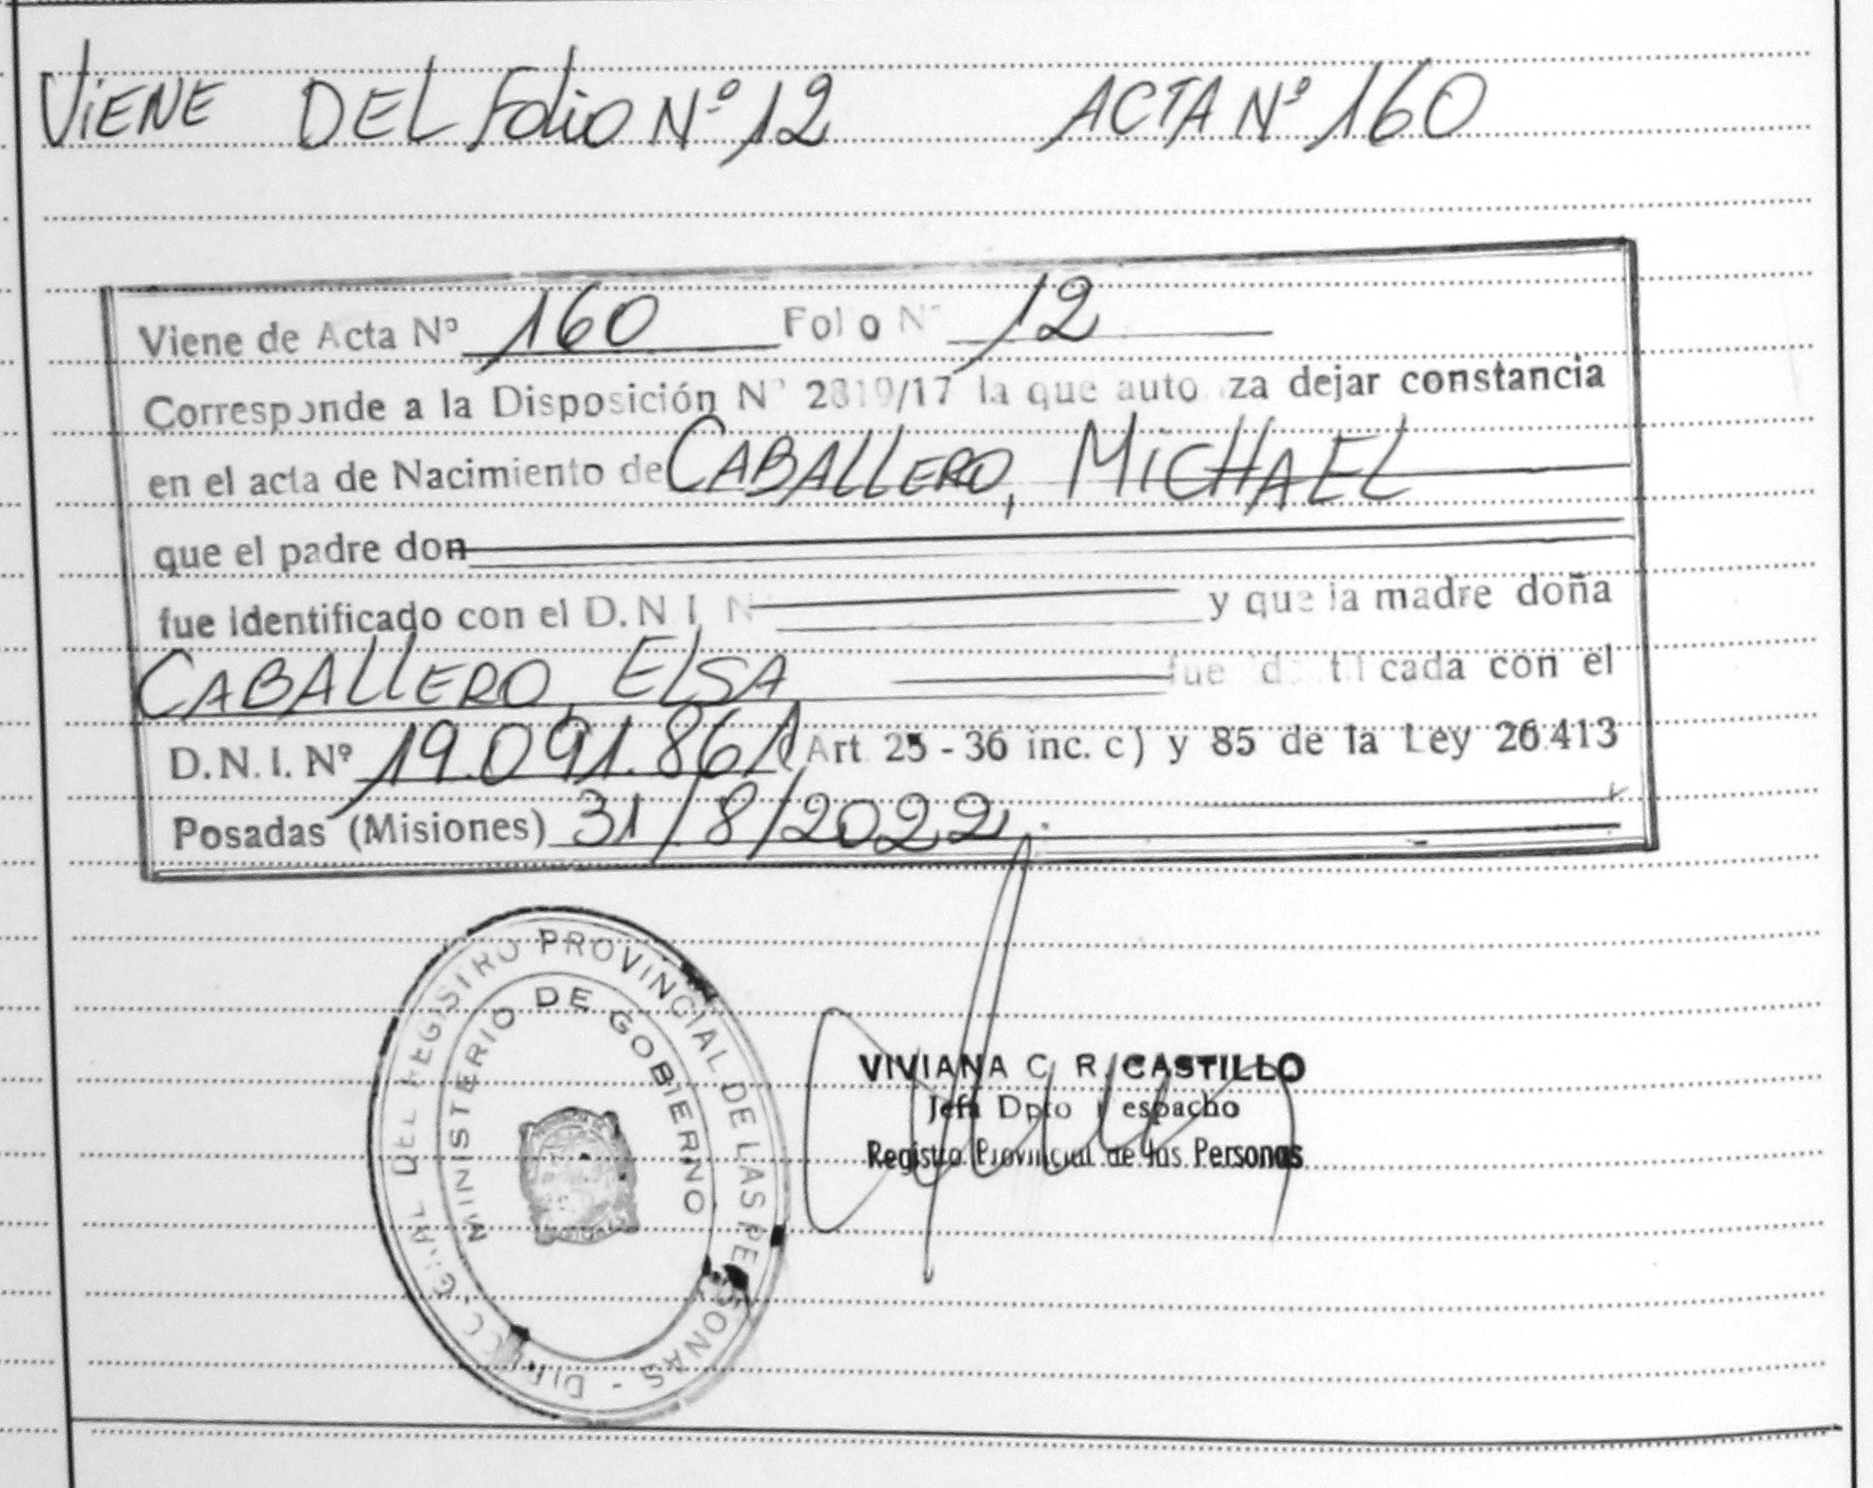 ViENE DEL Folio Nº 12 ACTA Nº 160
Viene de Acta Nº 160 Folio Nº 12
Corresponde a la Disposición Nº 2819/17 la que autoriza dejar constancia
en el acta de Nacimiento de CABALLERO, MiCHAEL
que el padre don
fue identificado con el D.N.I. Nº y que la madre doña
CABALLERO, ELSA fue identificada con el
D.N.I. Nº 19.091.861 (Art. 25 - 36 inc. c) y 85 de la Ley 26.413
Posadas (Misiones) 31/8/2022.
DIRECC. GRAL DEL REGISTRO PROVINCIAL DE LAS PERSONAS -
MINISTERIO DE GOBIERNO
VIVIANA C. R. CASTILLO
Jefa Dpto Despacho
Registro Provincial de las Personas